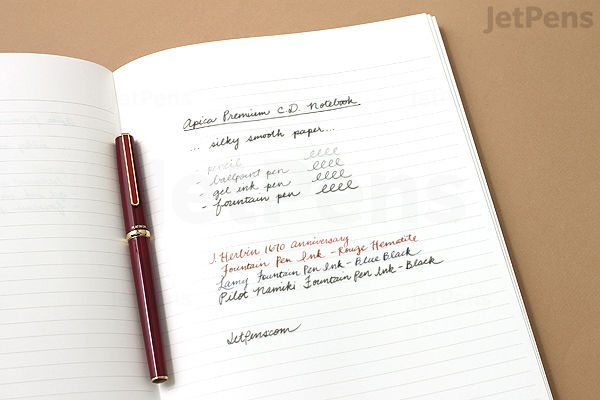 JetPens
Apica Premium C.D. Notebook
... silky smooth paper...
- pencil llll
- ballpoint pen llll
- gel ink pen llll
- fountain pen llll
J. Herbin 1670 anniversary
Fountain Pen Ink - Rouge Hematite
Lamy Fountain Pen Ink - Blue Black
Pilot Namiki Fountain Pen Ink - Black
JetPens.com